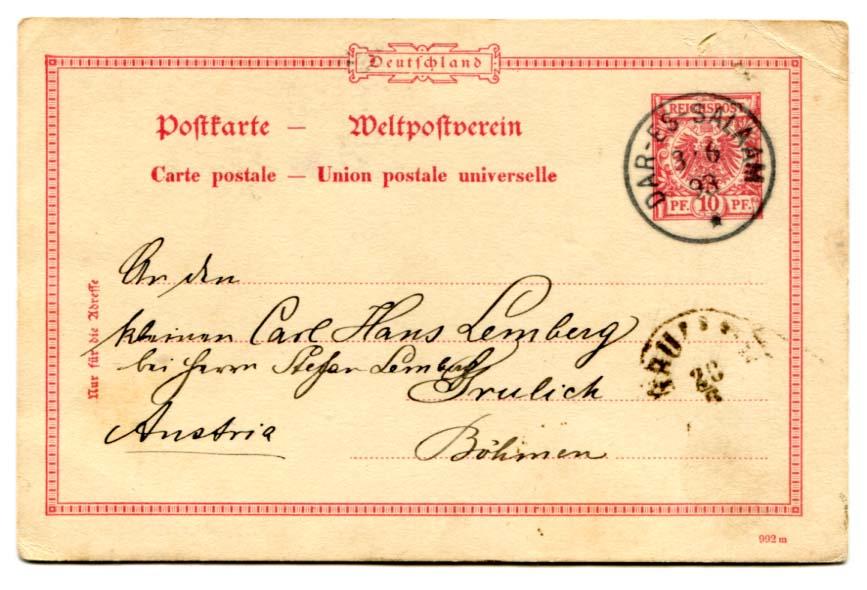 Deutschland
Postkarte — Weltpostverein
Carte postale — Union postale universelle
REICHSPOST
PF. 10 PF.
DAR-ES-SALAAM
3/6
93
Nur für die Adresse
An den
kleinen Carl Hans Lemberg
bei Herrn Stefan Lemberg
Grulich
Austria
Böhmen
992 m